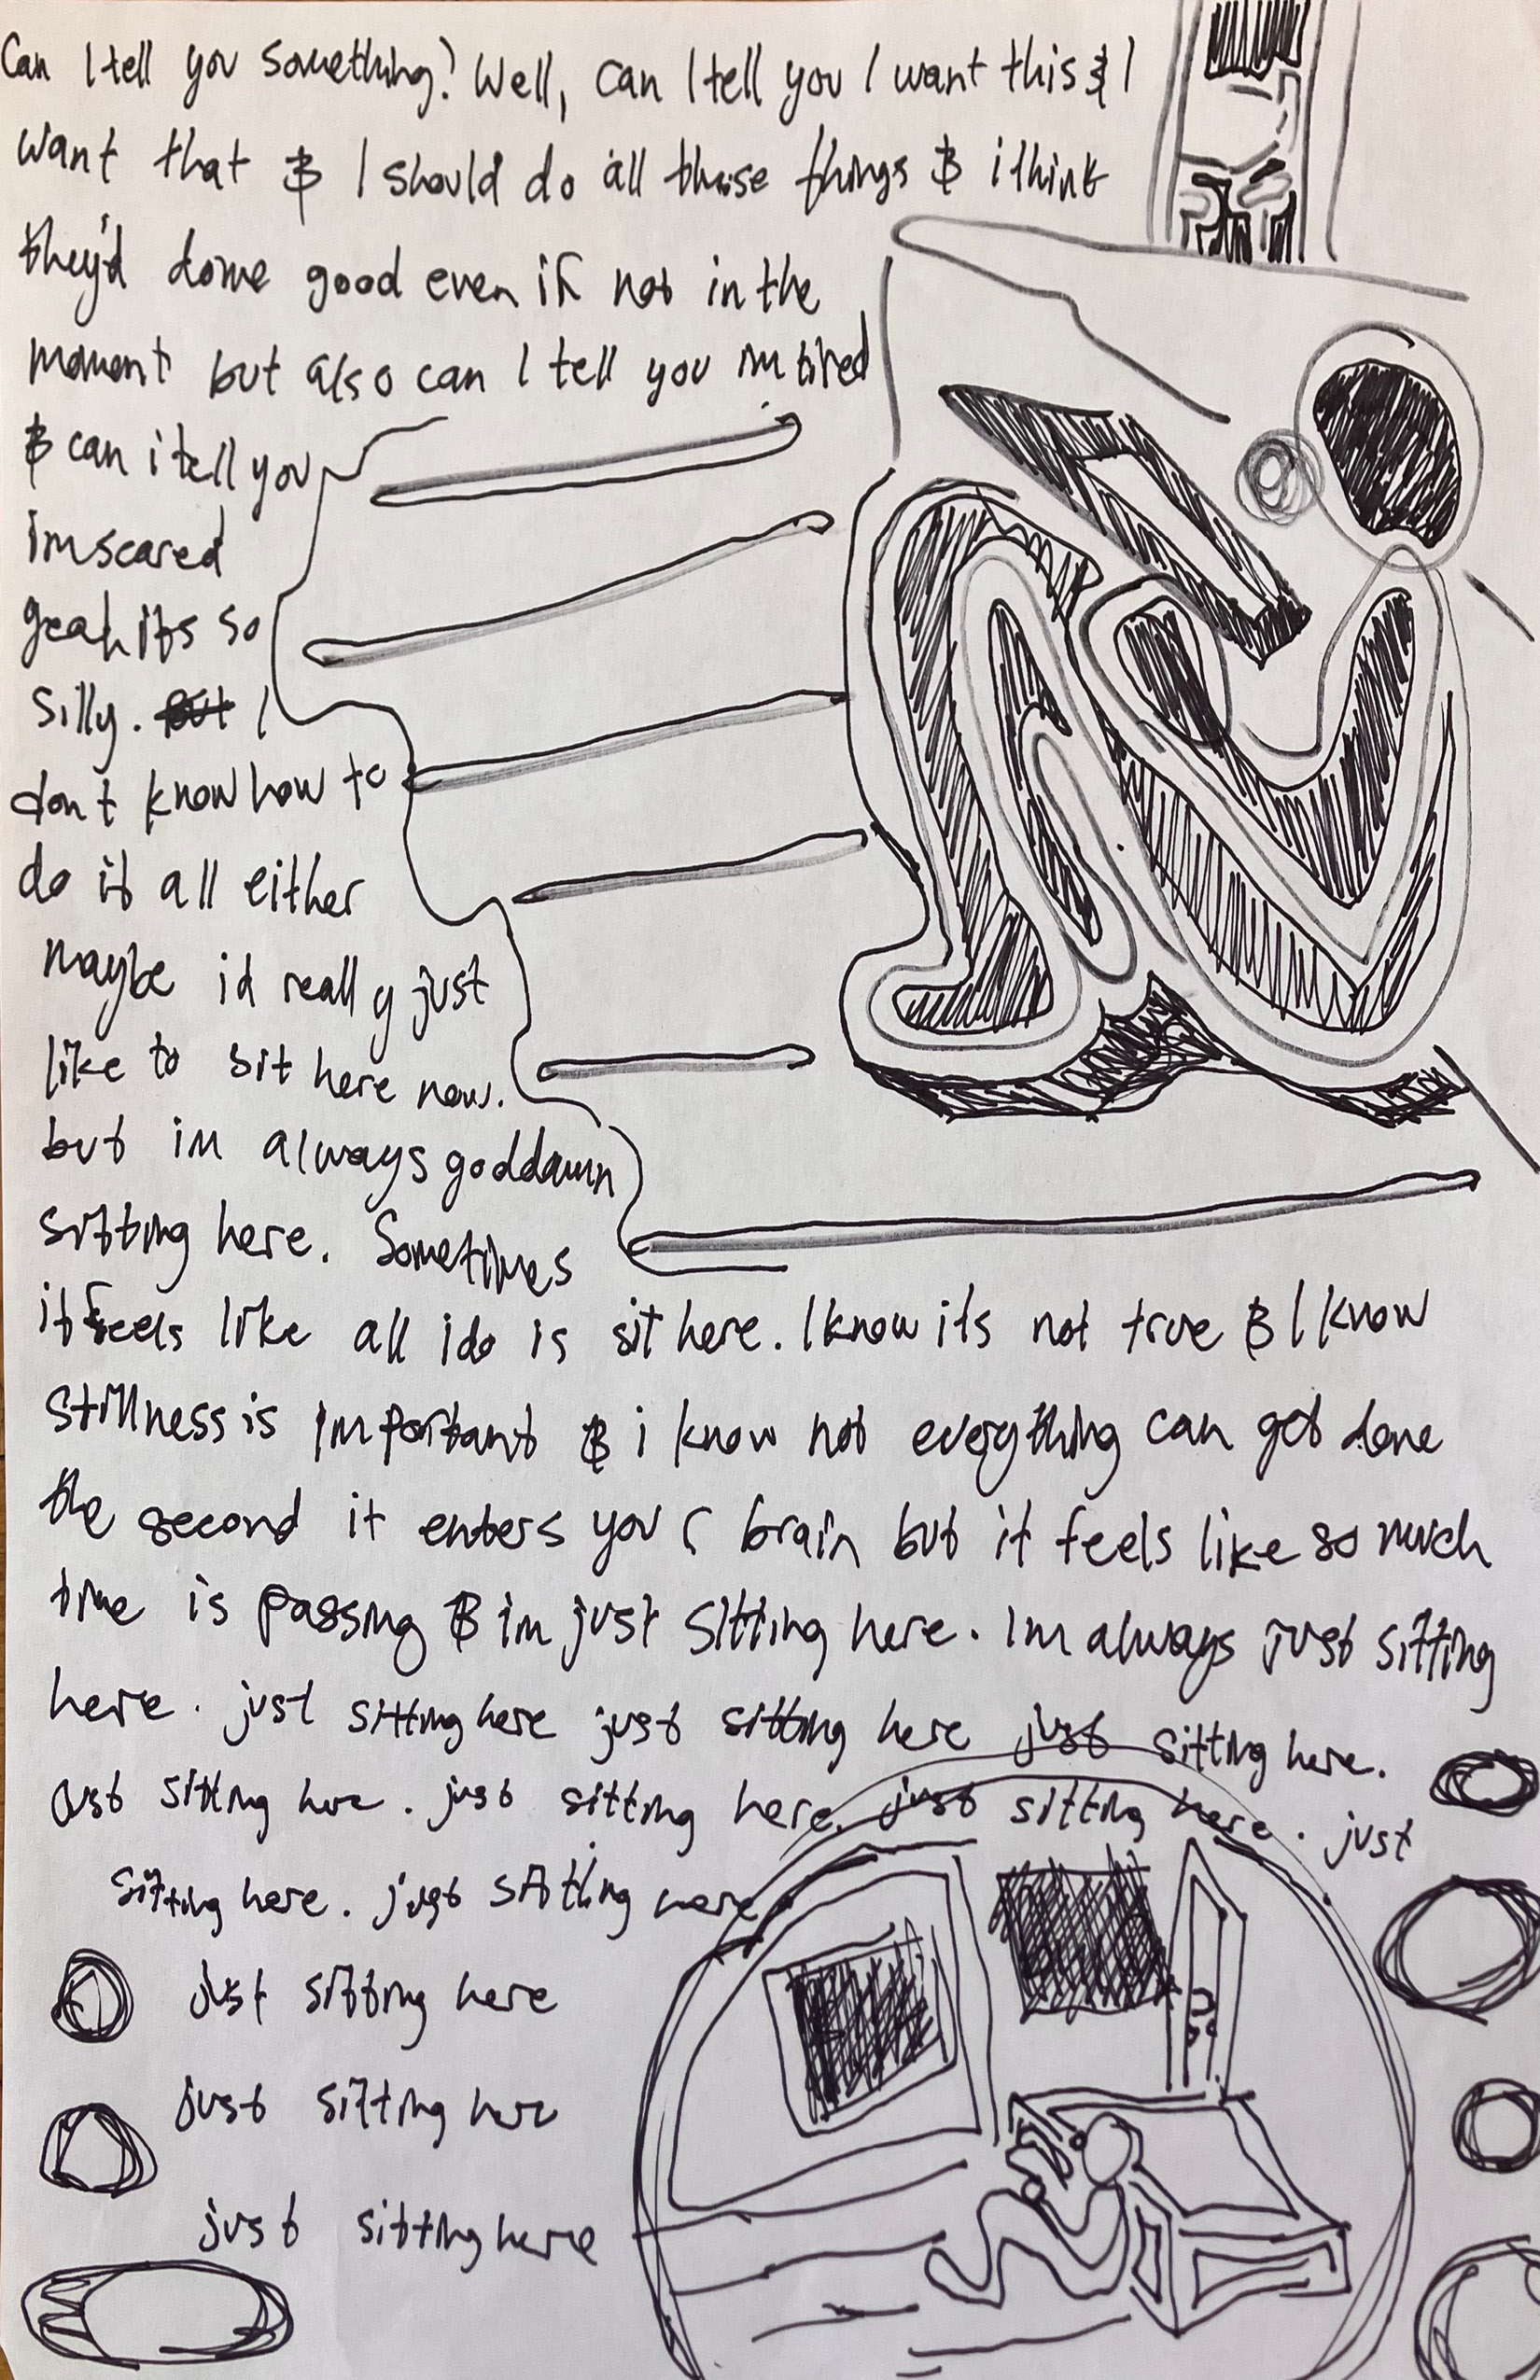 Can I tell you something? Well, can I tell you I want this & I
want that & I should do all these things & i think
they'd do me good even if not in the
moment but also can I tell you im tired
& can i tell you
im scared
yeah its so
silly. but I
don't know how to
do it all either
maybe id really just
like to sit here now.
but im always goddamn
sitting here. Sometimes
it feels like all i do is sit here. I know its not true & I know
stillness is important & i know not everything can get done
the second it enters your brain but it feels like so much
time is passing & im just sitting here. Im always just sitting
here. just sitting here just sitting here just sitting here.
just sitting here. just sitting here. just sitting here. just
sitting here. just sitting here
just sitting here
just sitting here
just sitting here